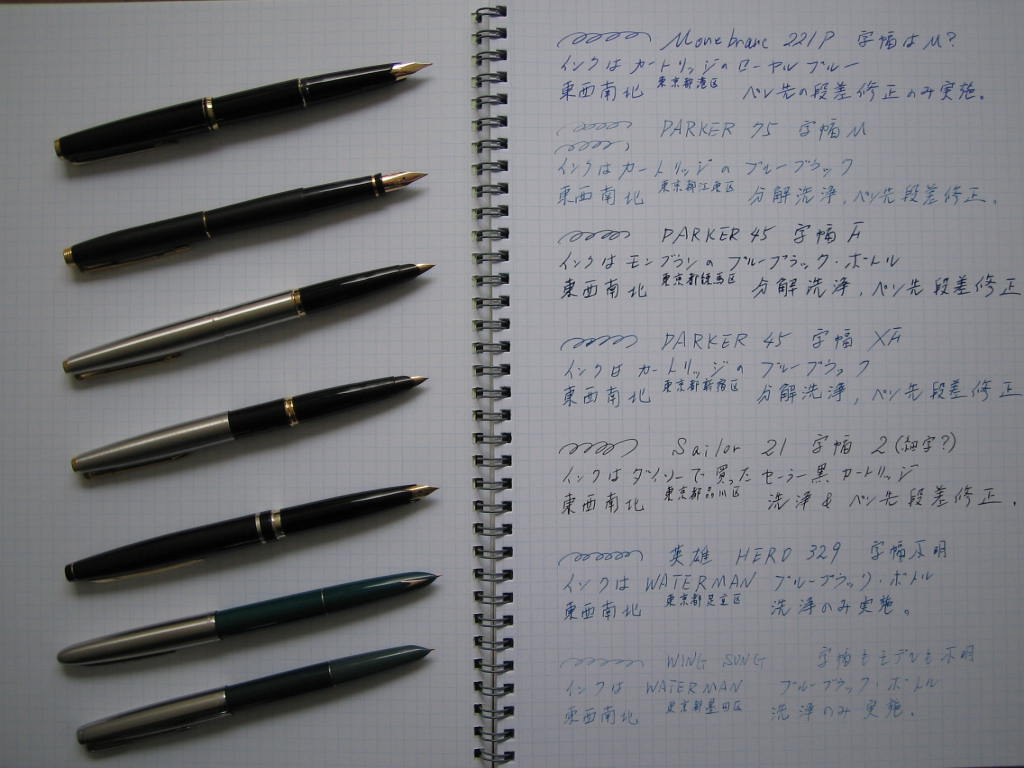 Monc branc 221P 字幅はM?
インクは カートリッジの ローヤル ブルー
東西南北 東京都港区 ペン先の段差修正のみ実施。
PARKER 75 字幅 M
インクは カートリッジの ブルーブラック
東西南北 東京都江東区 分解洗浄,ペン先段差修正.
PARKER 45 字幅 F
インクは モンブランの ブルーブラック・ボトル
東西南北 東京都練馬区 分解洗浄,ペン先段差修正
PARKER 45 字幅 XF
インクは カートリッジの ブルーブラック
東西南北 東京都新宿区 分解洗浄,ペン先段差修正
Sailor 21 字幅 2(細字?)
インクは ダイソーで買った セーラー黒 カートリッジ
東西南北 東京都品川区 洗浄 & ペン先段差修正.
英雄 HERO 329 字幅不明
インクは WATERMAN ブルーブラック・ボトル
東西南北 東京都足立区 洗浄のみ実施。
WING SUNG 字幅もモデルも不明
インクは WATERMAN ブルーブラック・ボトル
東西南北 東京都墨田区 洗浄のみ実施.